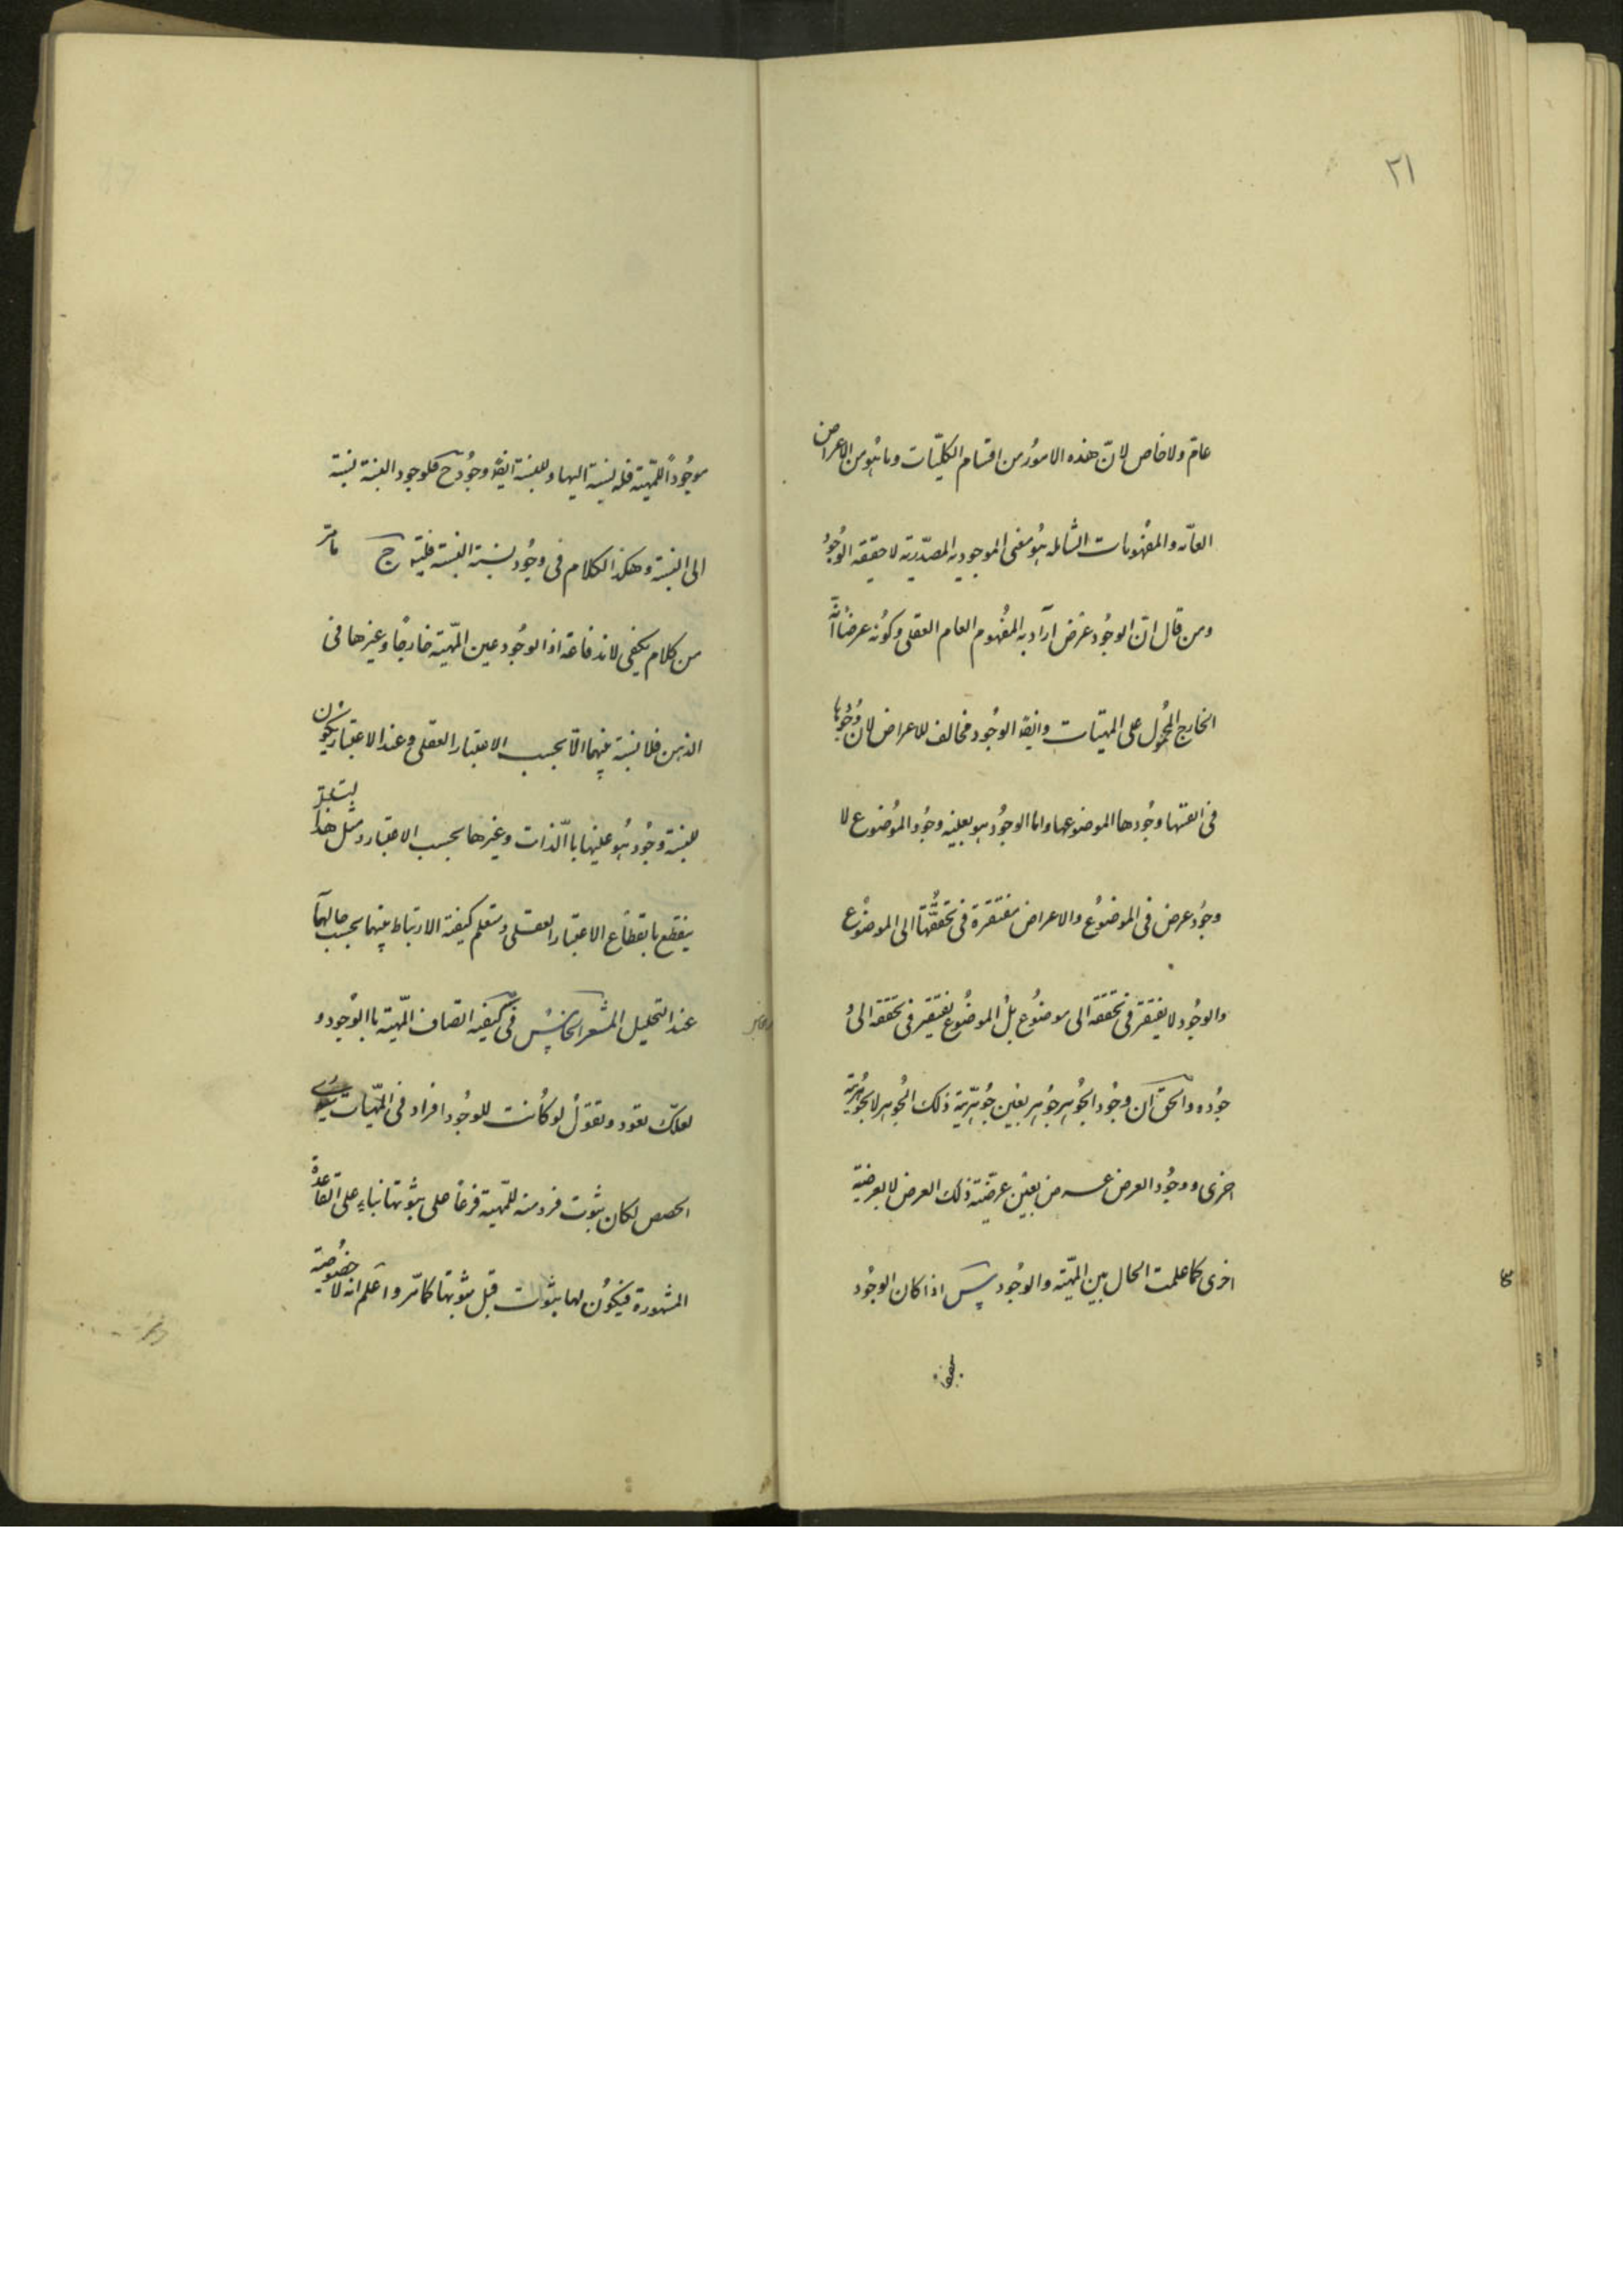 ٢١
عام ولا خاص لان هذه الامور من اقسام الكليّات وما هو من الاعراض
العامّه والمفهومات الشامله هو معنى الموجوديه المصدريّه لا حقيقه الوجود
ومن قال انّ الوجود عرض اراد به المفهوم العام العقلى وكونه عرضا انّه
الخارج المحمول على المهيّات وايضا الوجود مخالف للاعراض لان وجودها
فى انفسها وجودها لموضوعها واما الوجود هو بعينه وجود الموضوع لا
وجود عرض فى الموضوع والاعراض مفتقرة فى تحققها الى الموضوع
والوجود لا يفتقر فى تحققه الى موضوع بل الموضوع يفتقر فى تحققه الى و
جوده والحق ان وجود الجوهر جوهر بعين جوهريّة ذلك الجوهر لا بجوهرية
اخرى ووجود العرض عرض بعين عرضيّة ذلك العرض لا بعرضية
اخرى كما علمت الحال بين المهيّة والوجود پس اذا كان الوجود
موجودًا للمهيّة فله نسبة اليها وللنسبة ايضا وجود ح فلوجود النسبة نسبة
الى النسبة وهكذا الكلام فى وجود نسبة النسبة فليتس ج ما مر
من كلام يكفى لاندفاعه اذ الوجود عين المهيّة خارجا وغيرها فى
الذهن فلا نسبة بينهما الّا بحسب الاعتبار العقلى وعند الاعتبار يكون
للنسبة وجود هو عينها باالذات وغيرها بحسب الاعتبار ومثل هذا
ينقطع بانقطاع الاعتبار العقلى وستعلم كيفية الارتباط بينهما بحسب حالهما
عند التحليل المشعر الخامس فى كيفيه اتصاف المهيّة باالوجود و
لعلك تعود وتقول لو كانت للوجود افراد فى المهيّات سوى
الحصص لكان ثبوت فرد منه للمهيّة فرعا على ثبوتها بناء على القاعدة
المشهورة فيكون لها ثبوت قبل ثبوتها كما مرّ واعلم انه لا خصوصية